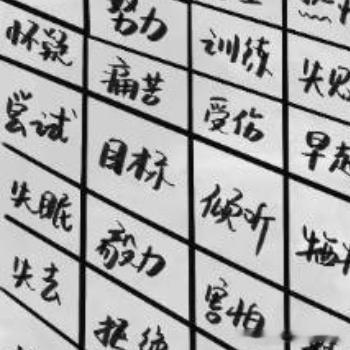 努力
怀疑 痛苦 训练
尝试 目标 受伤 早起
失眠 毅力 倾听 牺牲
失去 拒绝 害怕